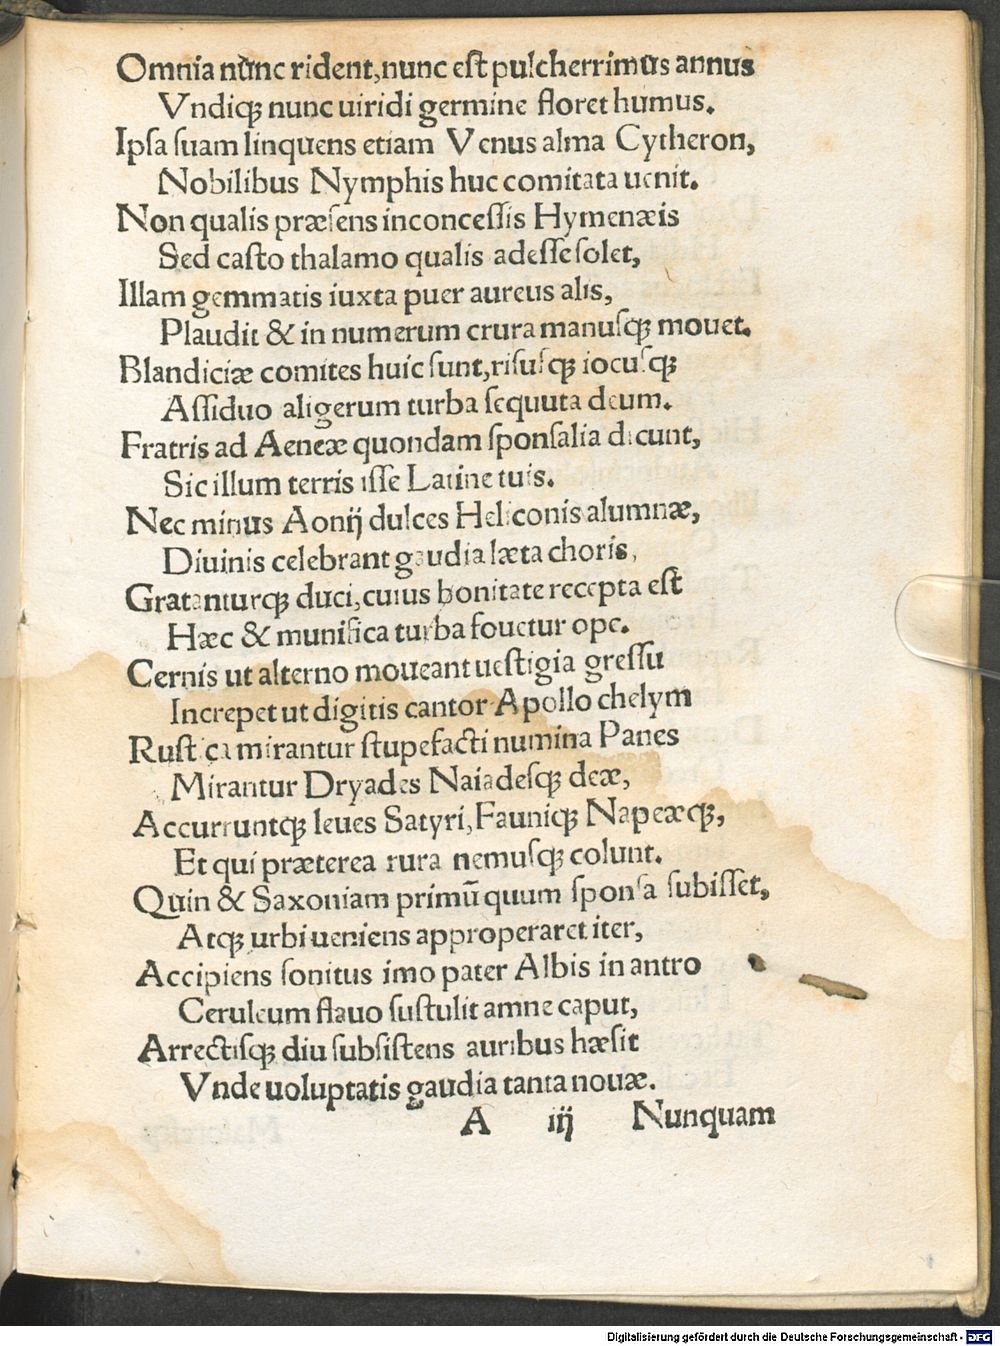 Omnia nunc rident,nunc est pulcherrimus annus
Vndiqꝫ nunc uiridi germine floret humus.
Ipsa suam linquens etiam Venus alma Cytheron,
Nobilibus Nymphis huc comitata uenit.
Non qualis præsens inconcessis Hymenæis
Sed casto thalamo qualis adesse solet,
Illam gemmatis iuxta puer aureus alis,
Plaudit & in numerum crura manusqꝫ mouet.
Blandiciæ comites huic sunt,risusqꝫ iocusqꝫ
Assiduo aligerum turba sequuta deum.
Fratris ad Aeneæ quondam sponsalia dicunt,
Sic illum terris isse Latine tuis.
Nec minus Aonij dulces Heliconis alumnæ,
Diuinis celebrant gaudia læta choris,
Gratanturqꝫ duci,cuius bonitate recepta est
Hæc & munifica turba fouetur ope.
Cernis ut alterno moueant uestigia gressu
Increpet ut digitis cantor Apollo chelym
Rustica mirantur stupefacti numina Panes
Mirantur Dryades Naiadesqꝫ deæ,
Accurruntqꝫ leues Satyri,Fauniqꝫ Napeæqꝫ,
Et qui præterea rura nemusqꝫ colunt.
Quin & Saxoniam primū quum sponsa subisset,
Atqꝫ urbi ueniens approperaret iter,
Accipiens sonitus imo pater Albis in antro
Ceruleum flauo sustulit amne caput,
Arrectisqꝫ diu subsistens auribus hæsit
Vnde uoluptatis gaudia tanta nouæ.
A iij Nunquam
Digitalisierung gefördert durch die Deutsche Forschungsgemeinschaft - DFG